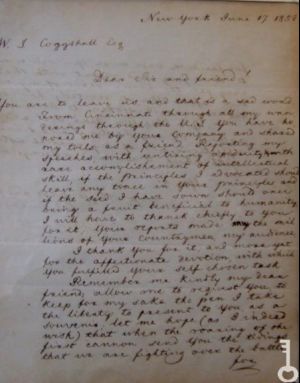 New York June 17 185
W. T. Coggshall Esq
Dear Sir and friend!
You are to leave us and that is a sad word
From Cincinnati through all my wan
derings through the U.S. you have ho
nored me by your company and shared
my toils, as a friend. Reporting my
speeches with untiring and with
rare accomplishment of intellectual
skill if the principles I advocated should
leave any trace in your principles and
if the seed I have sown should once
bring a fruit beneficial to humanity
I will have to thank chiefly to you
for it. Your reports made the mil
lions of your Countrymen my audience
I thank you for it, and more yet
for the affectionate devotion, with which
you fulfilled your self chosen task
Remember me kindly my dear
friend, allow me to request you to
keep for my sake the pen I take
the liberty to present to you as a
souvenir, let me hope (as I indeed
wish) that when the roaring of the
first cannon send you the tidings
that we are fighting over the battle